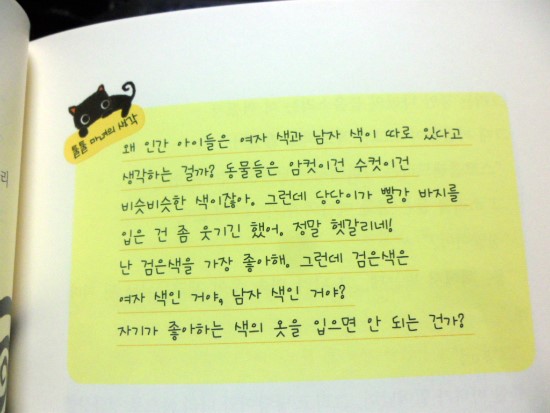 톰톰 마녀의 생각
왜 인간 아이들은 여자 색과 남자 색이 따로 있다고
생각하는 걸까? 동물들은 암컷이건 수컷이건
비슷비슷한 색이잖아. 그런데 당당이가 빨강 바지를
입은 건 좀 웃기긴 했어. 정말 헷갈리네!
난 검은색을 가장 좋아해. 그런데 검은색은
여자 색인 거야, 남자 색인 거야?
자기가 좋아하는 색의 옷을 입으면 안 되는 건가?
리